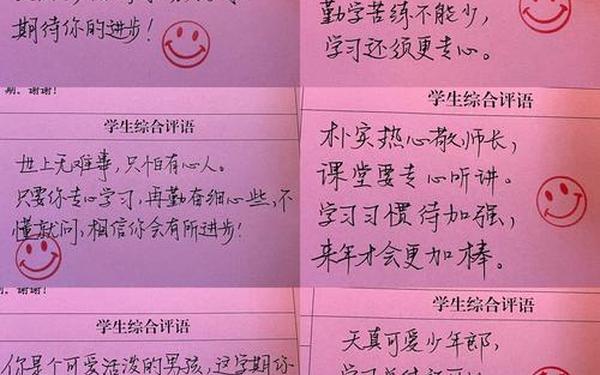 期待你的进步！
勤学苦练不能少，
学习还须更专心。
期，谢谢！
学生综合评语
世上无难事，只怕有心人。
只要你专心学习，再勤奋细心些，不
懂就问，相信你会有所进步！
学生综合评语
朴实热心敬师长，
课堂要专心听讲。
学习习惯待加强，
来年才会更加棒。
学生综合评语
你是个可爱活泼的男孩，这学期还
学生综合评语
天真可爱少年郎，